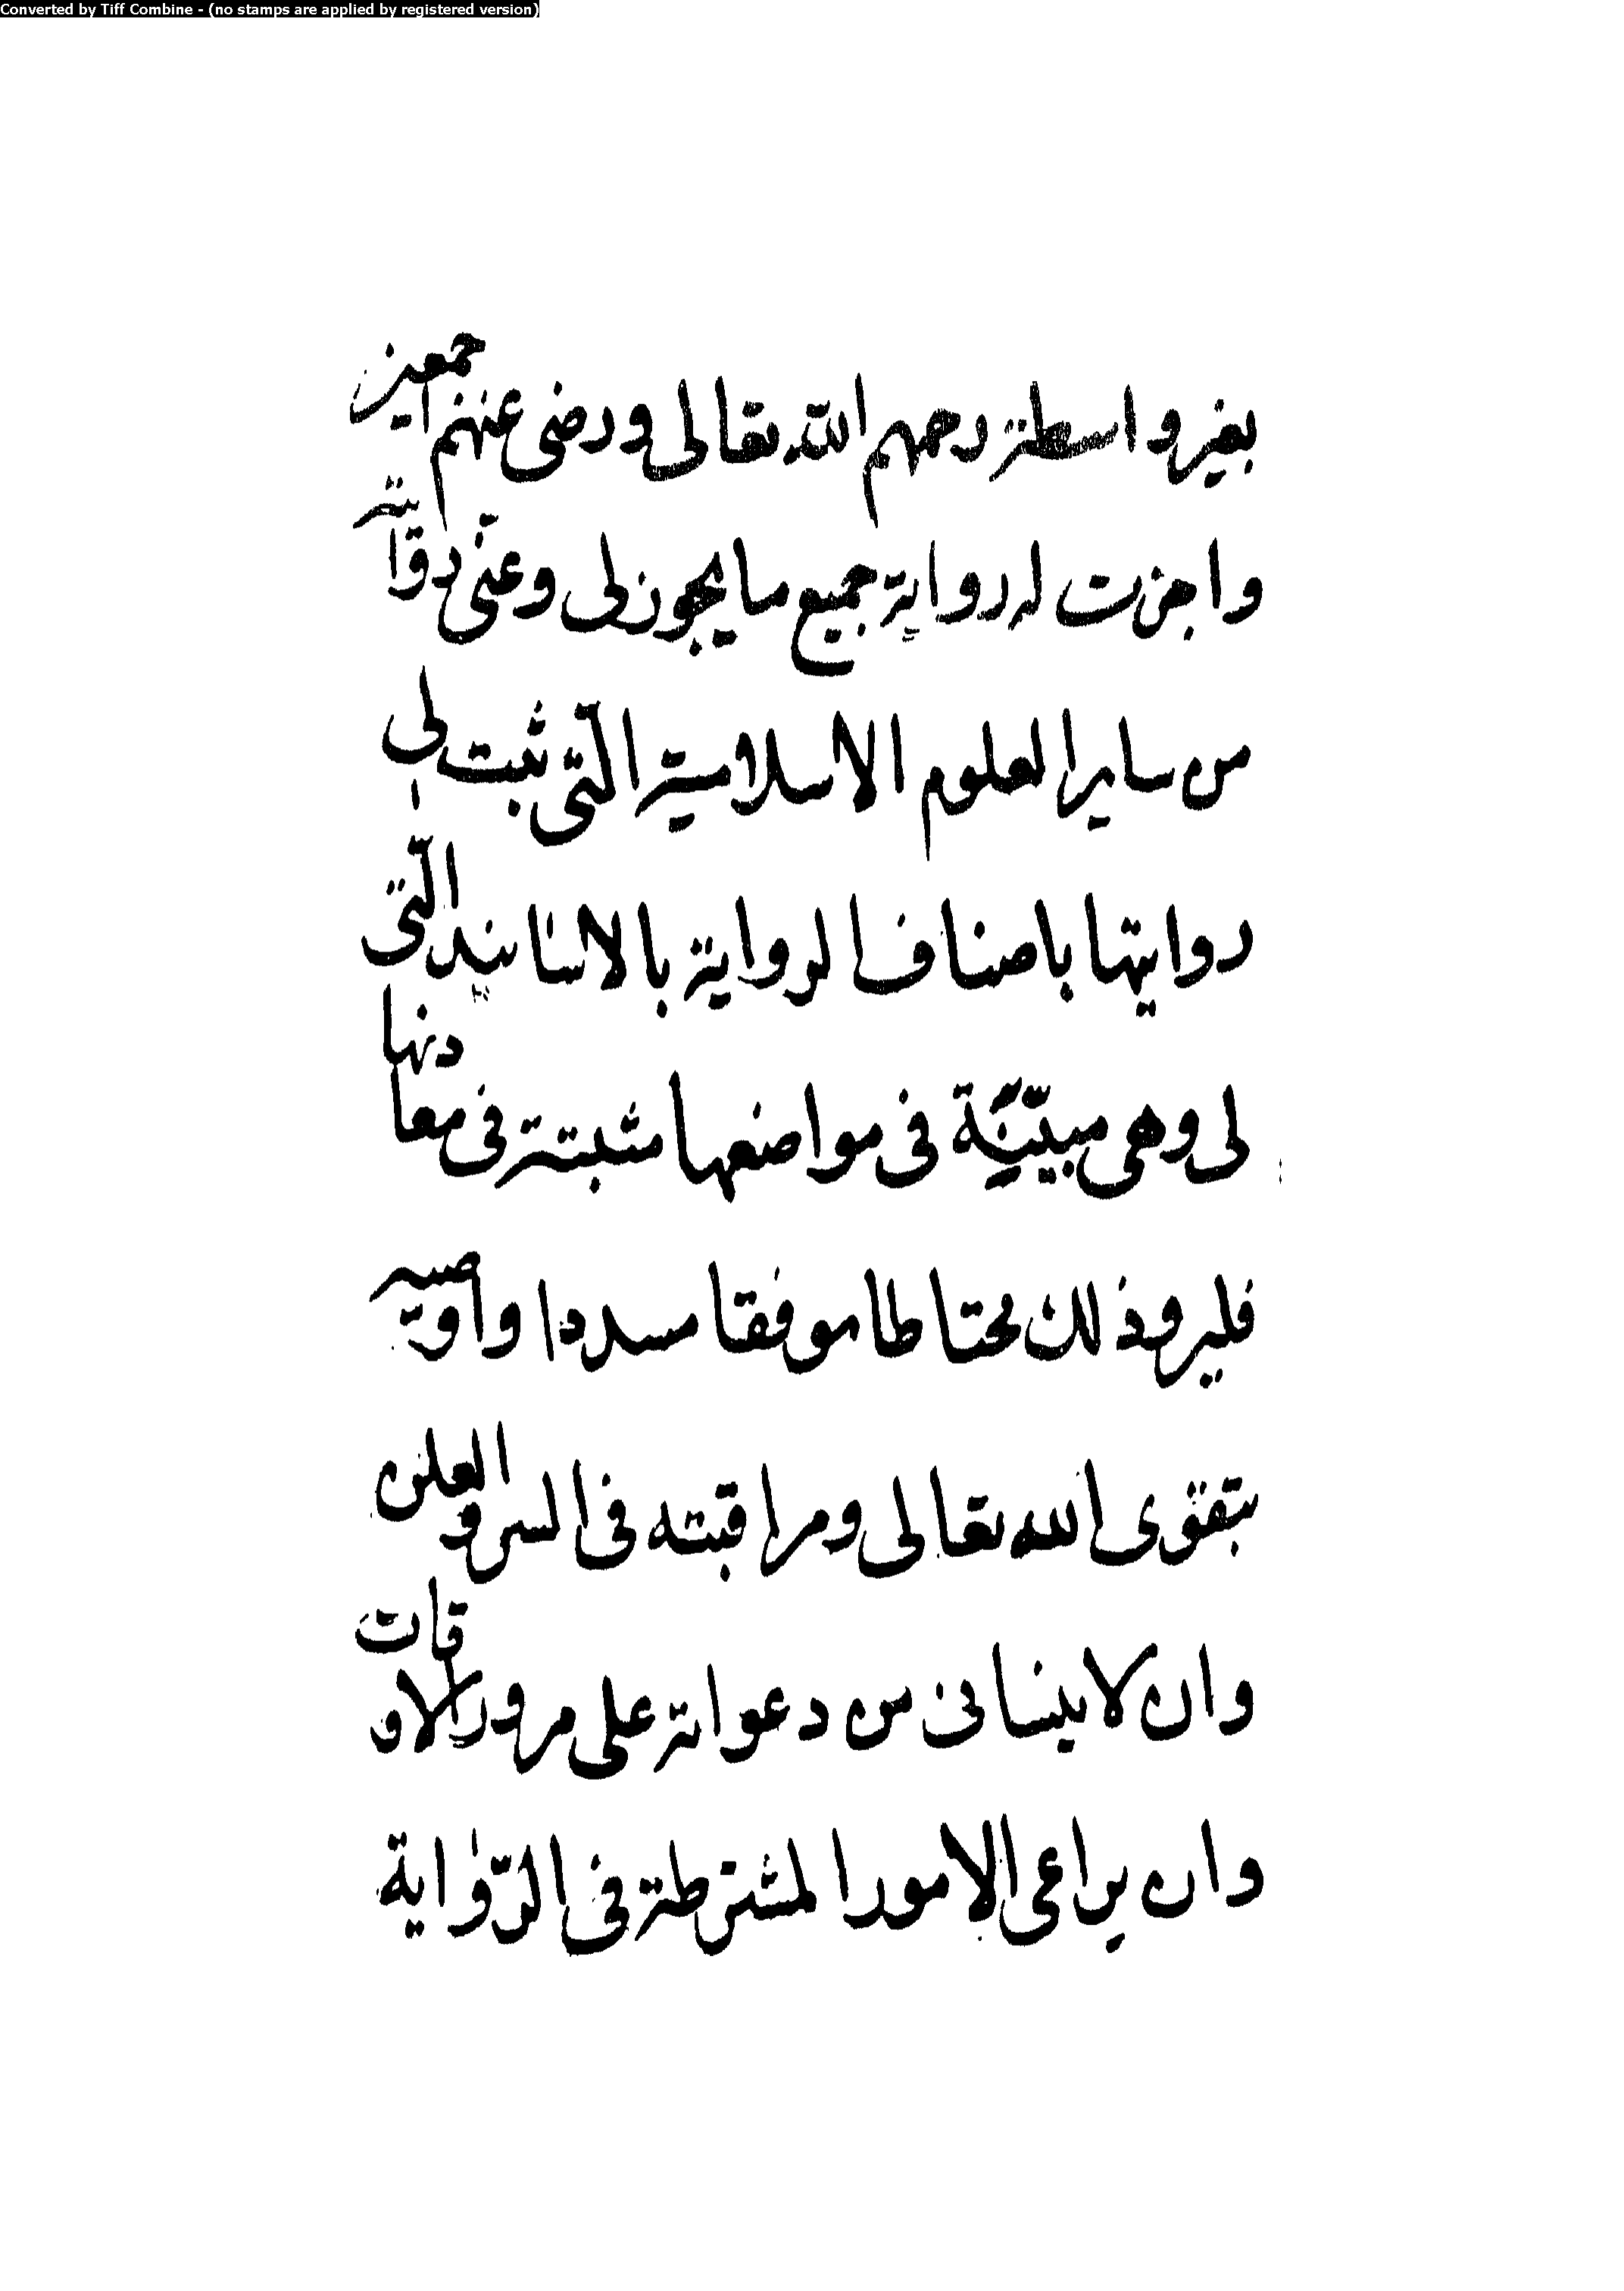 Converted by Tiff Combine - (no stamps are applied by registered version)
بغير واسطة رحمهم الله تعالى ورضى عنهم اجمعين
واجزت له رواية جميع ما يجوز لى وعنّى روايته
من ساير العلوم الاسلامية الّتى ثبت لى
روايتها باصناف الرواية بالاسانيد الّتى
لى وهى مبيّنة فى مواضعها مثبتة فى معادنها
فليرو ذلك محتاطا موفقا مسددا واوصيه
بتقوى الله تعالى ومراقبته فى السر والعلن
وان لا ينسانى من دعواته على مرور الاوقات
وان يراعى الامور المشترطة فى الرّواية